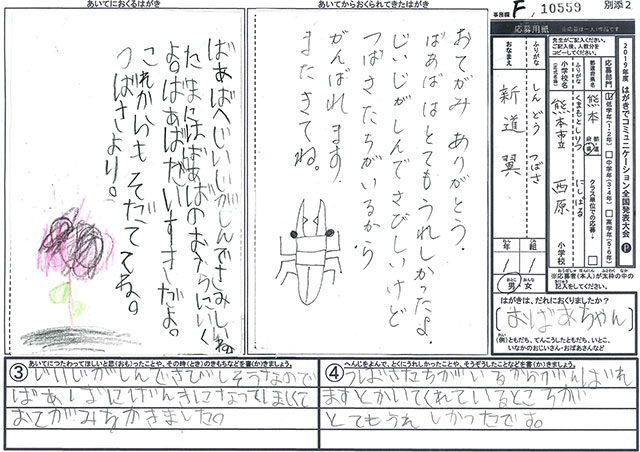 あいてにおくるはがき
ばあばへじいじがしんでさみしいね。
たまにばあばのおうちにいく
よ。ばあばだいすきだよ。
これからもそだててね。
つばさより。
あいてからおくられてきたはがき
おてがみありがとう。
ばあばはとてもうれしかったよ。
じいじがしんでさびしいけど
つばさたちがいるから
がんばれます。
またきてね。
事務欄 F, 10559
別添2
応募用紙
※応募は一人1作品です。
2019年度 はがきでコミュニケーション全国発表大会
応募部門
低学年(1・2年)
中学年(3・4年)
高学年(5・6年)
都道府県名
熊本
都道府県
小学校名
くまもとしりつ にしばる
熊本市立 西原 小学校
クラス単位での応募
ふりがな しんどう つばさ
おなまえ 新道 翼
1年 1組
男・女
※応募者(本人)が太枠の中の記入をしてください。
はがきは、だれにおくりましたか?
おばあちゃん
(例)ともだち、てんこうしたともだち、いとこ、
いなかのおじいさん・おばあさんなど
③ あいてにつたわってほしいと思(おも)ったことや、その時(とき)のきもちなどを書(か)きましょう。
じいじがしんでさびしそうなので
ばあばにげんきになってほしくて
おてがみをかきました。
④ へんじをよんで、とくにうれしかったことや、そうぞうしたことなどを書(か)きましょう。
つばさたちがいるからがんばれ
ますとかいてくれているところが
とてもうれしかったです。